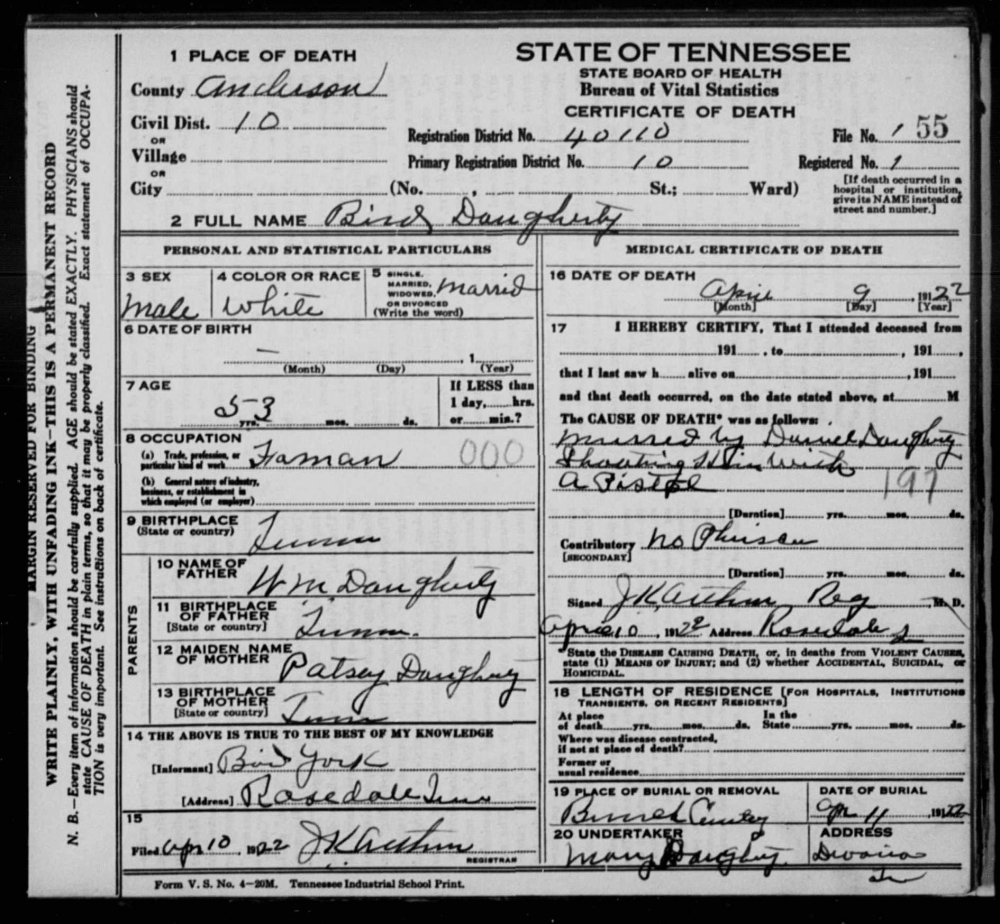 STATE OF TENNESSEE
STATE BOARD OF HEALTH
Bureau of Vital Statistics
CERTIFICATE OF DEATH
1 PLACE OF DEATH
County Anderson
Civil Dist. 10
OR
Village
OR
City (No. , St.; Ward)
Registration District No. 40110 File No. 155
Primary Registration District No. 10 Registered No. 1
[If death occurred in a
hospital or institution,
give its NAME instead of
street and number.]
2 FULL NAME Bird Daugherty
PERSONAL AND STATISTICAL PARTICULARS
3 SEX 4 COLOR OR RACE 5 SINGLE, MARRIED, WIDOWED, OR DIVORCED (Write the word)
Male White Married
6 DATE OF BIRTH
— , 1
(Month) (Day) (Year)
7 AGE If LESS than
1 day, hrs.
53 yrs. mos. ds. or min.?
8 OCCUPATION
(a) Trade, profession, or
particular kind of work Faman 000
(b) General nature of industry,
business, or establishment in
which employed (or employer)
9 BIRTHPLACE
(State or country) Tenn
PARENTS
10 NAME OF
FATHER Wm Daugherty
11 BIRTHPLACE
OF FATHER
[State or country] Tenn.
12 MAIDEN NAME
OF MOTHER Patsey Daugherty
13 BIRTHPLACE
OF MOTHER
[State or country] Tenn
14 THE ABOVE IS TRUE TO THE BEST OF MY KNOWLEDGE
[Informant] York
[Address] Rosedale Tenn
15
Filed Apr 10 1922 J K Arthur
REGISTRAR
MEDICAL CERTIFICATE OF DEATH
16 DATE OF DEATH
April 9 1922
[Month] [Day] [Year]
17 I HEREBY CERTIFY, That I attended deceased from
191 , to , 191 ,
that I last saw h alive on , 191
and that death occurred, on the date stated above, at M
The CAUSE OF DEATH* was as follows:
by Daniel Daugherty
Shooting Him With
A Pistol 197
[Duration] yrs. mos. ds.
Contributory No
[SECONDARY]
[Duration] yrs. mos. ds.
Signed J K Arthur Reg , M. D.
Apr 10 , 1922 Address Rosedale
*State the DISEASE CAUSING DEATH, or, in deaths from VIOLENT CAUSES,
state (1) MEANS OF INJURY; and (2) whether ACCIDENTAL, SUICIDAL, or
HOMICIDAL.
18 LENGTH OF RESIDENCE [FOR HOSPITALS, INSTITUTIONS
TRANSIENTS, OR RECENT RESIDENTS]
At place In the
of death yrs. mos. ds. State yrs. mos. ds.
Where was disease contracted,
if not at place of death?
Former or
usual residence
19 PLACE OF BURIAL OR REMOVAL DATE OF BURIAL
Apr 11 1922
20 UNDERTAKER ADDRESS
Daugherty
Form V. S. No. 4—20M. Tennessee Industrial School Print.
MARGIN RESERVED FOR BINDING
WRITE PLAINLY, WITH UNFADING INK—THIS IS A PERMANENT RECORD
N. B.—Every item of information should be carefully supplied. AGE should be stated EXACTLY. PHYSICIANS should
state CAUSE OF DEATH in plain terms, so that it may be properly classified. Exact statement of OCCUPA-
TION is very important. See instructions on back of certificate.